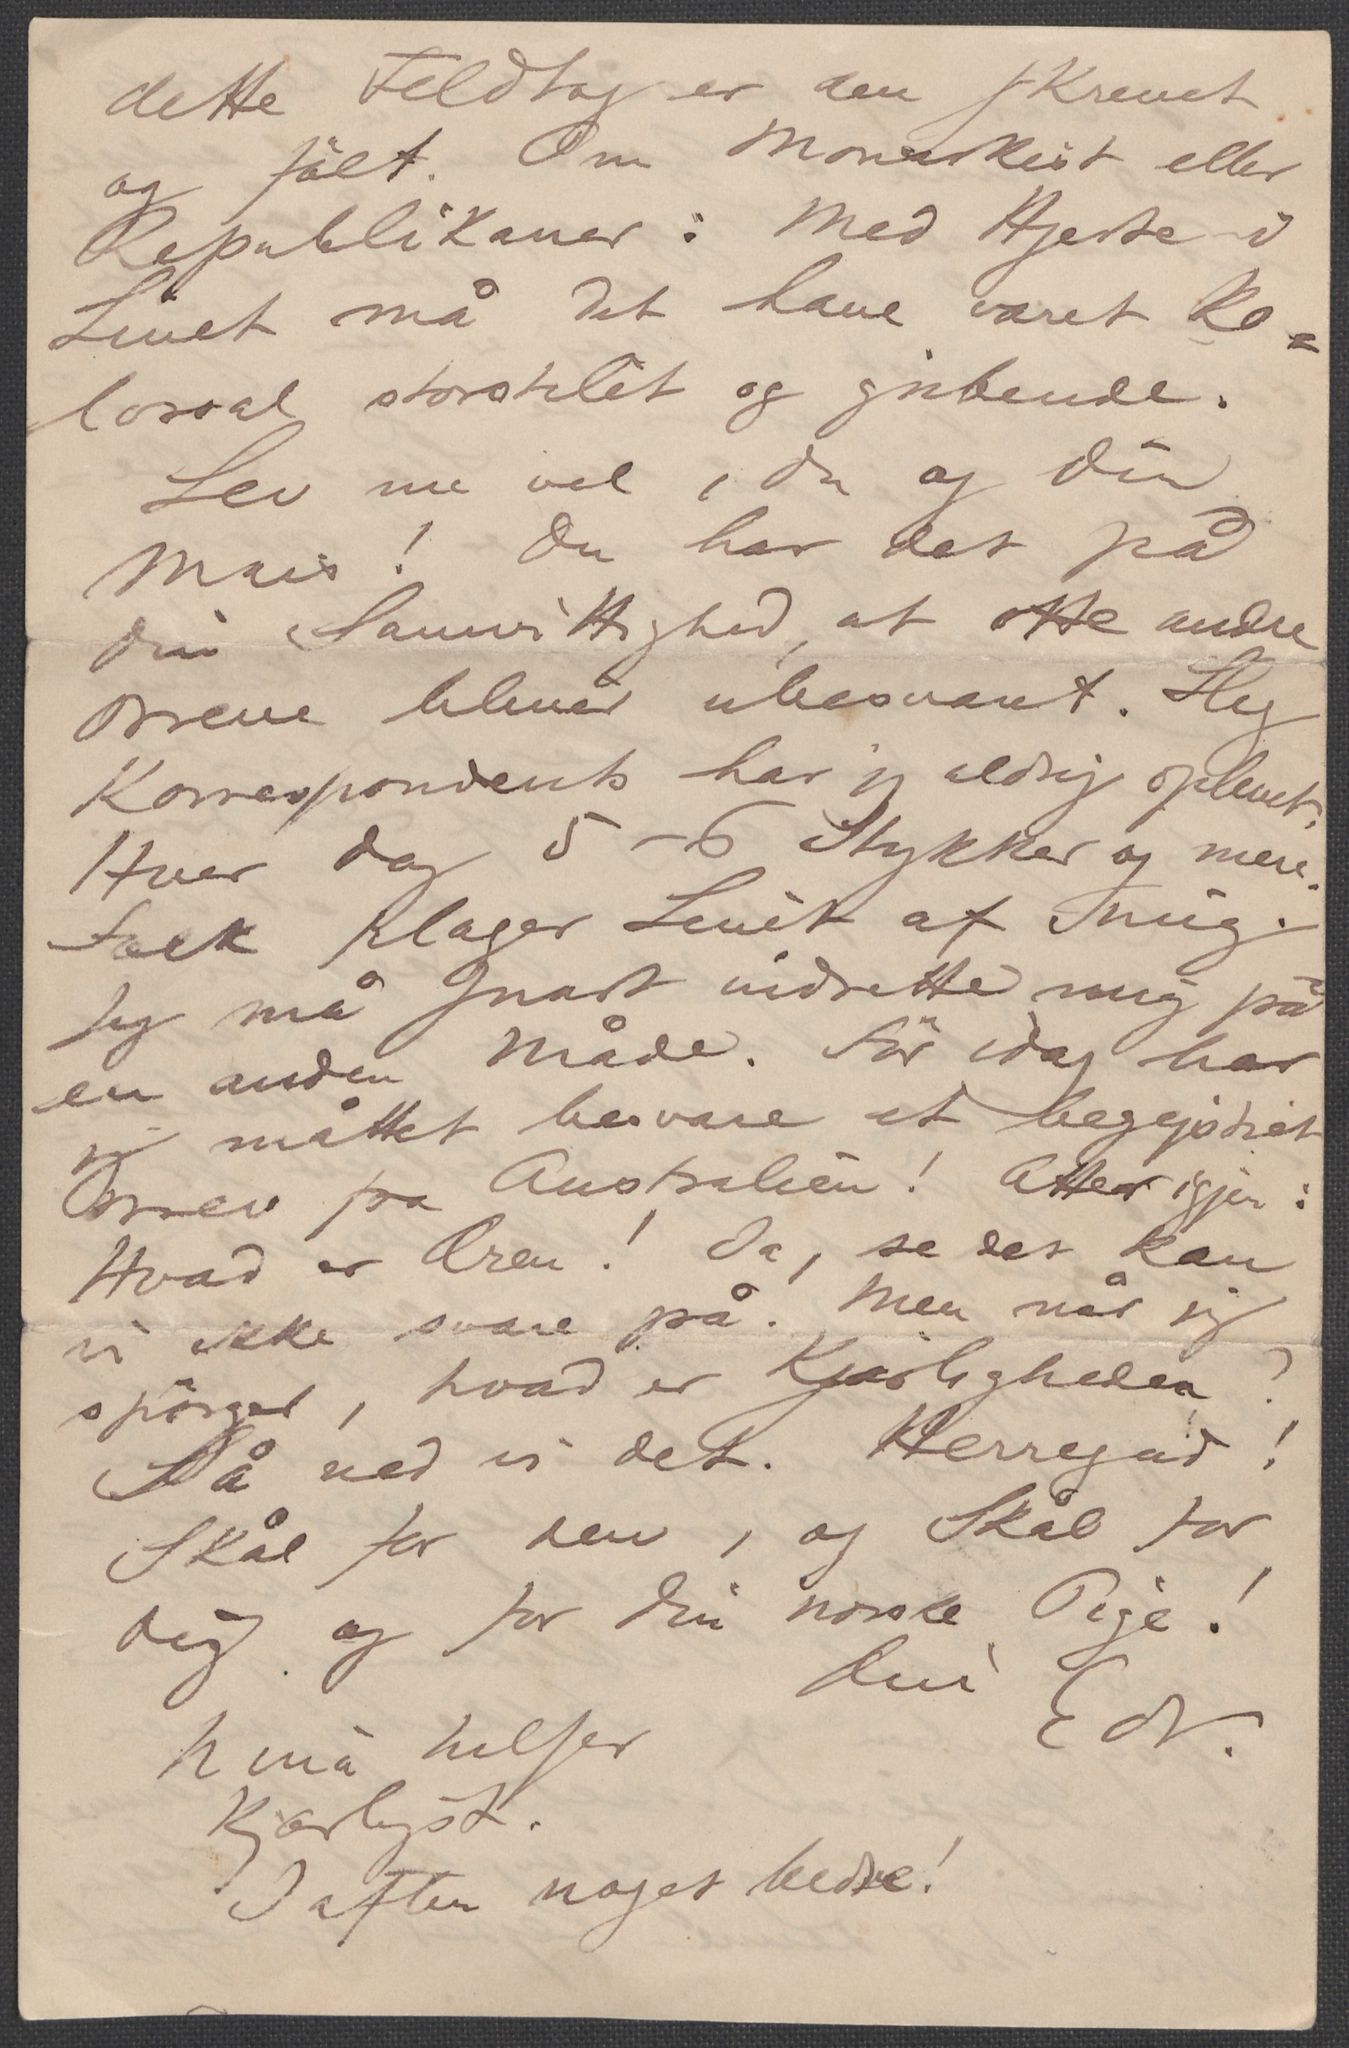 dette Feldtog er den skrevet
og følt. Om Monarkist eller
Republikaner: Med Hjerte i
Livet må det have været Ko=
lossal storstilet og gribende.
Lev nu vel, du og din
Mais! Du har det på
din Samvittighed, at otte andre
Breve bliver ubesvaret. Slig
Korrespondents har jeg aldrig oplevet.
Hver Dag 5–6 Stykker og mere.
Folk plager Livet af mig.
Jeg må snart indrette mig på
en anden Måde. Før idag har
jeg måttet besvare et begejstret
Brev fra Australien! Atter igjen:
Hvad er Æren! Ja, se det kan
vi ikke svare på. Men når jeg
spørger, hvad er Kjærligheden?
Så ved vi det. Herregud!
Skål for den, og Skål for
dig og for din norske Pige!
Din Edv.
Nina hilser
kjærligst.
Iaften noget bedre!